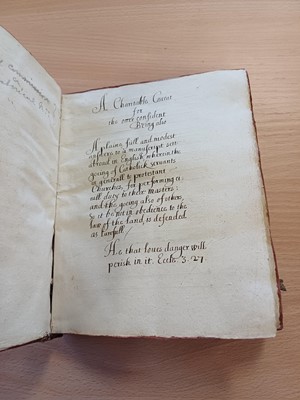 A Charitable Caveat
for
the over confident
Being also
A plaine, full and modest
answere to a manuscript sett
abroad in English wherein the
going of Catholick servants
in generall to protestant
Churches, for performing a
civill duty to their masters:
and the going also of others,
so it be not in obedience to the
law of the land, is defended
as lawfull
He that loves danger will
perish in it. Eccls: 3.27.